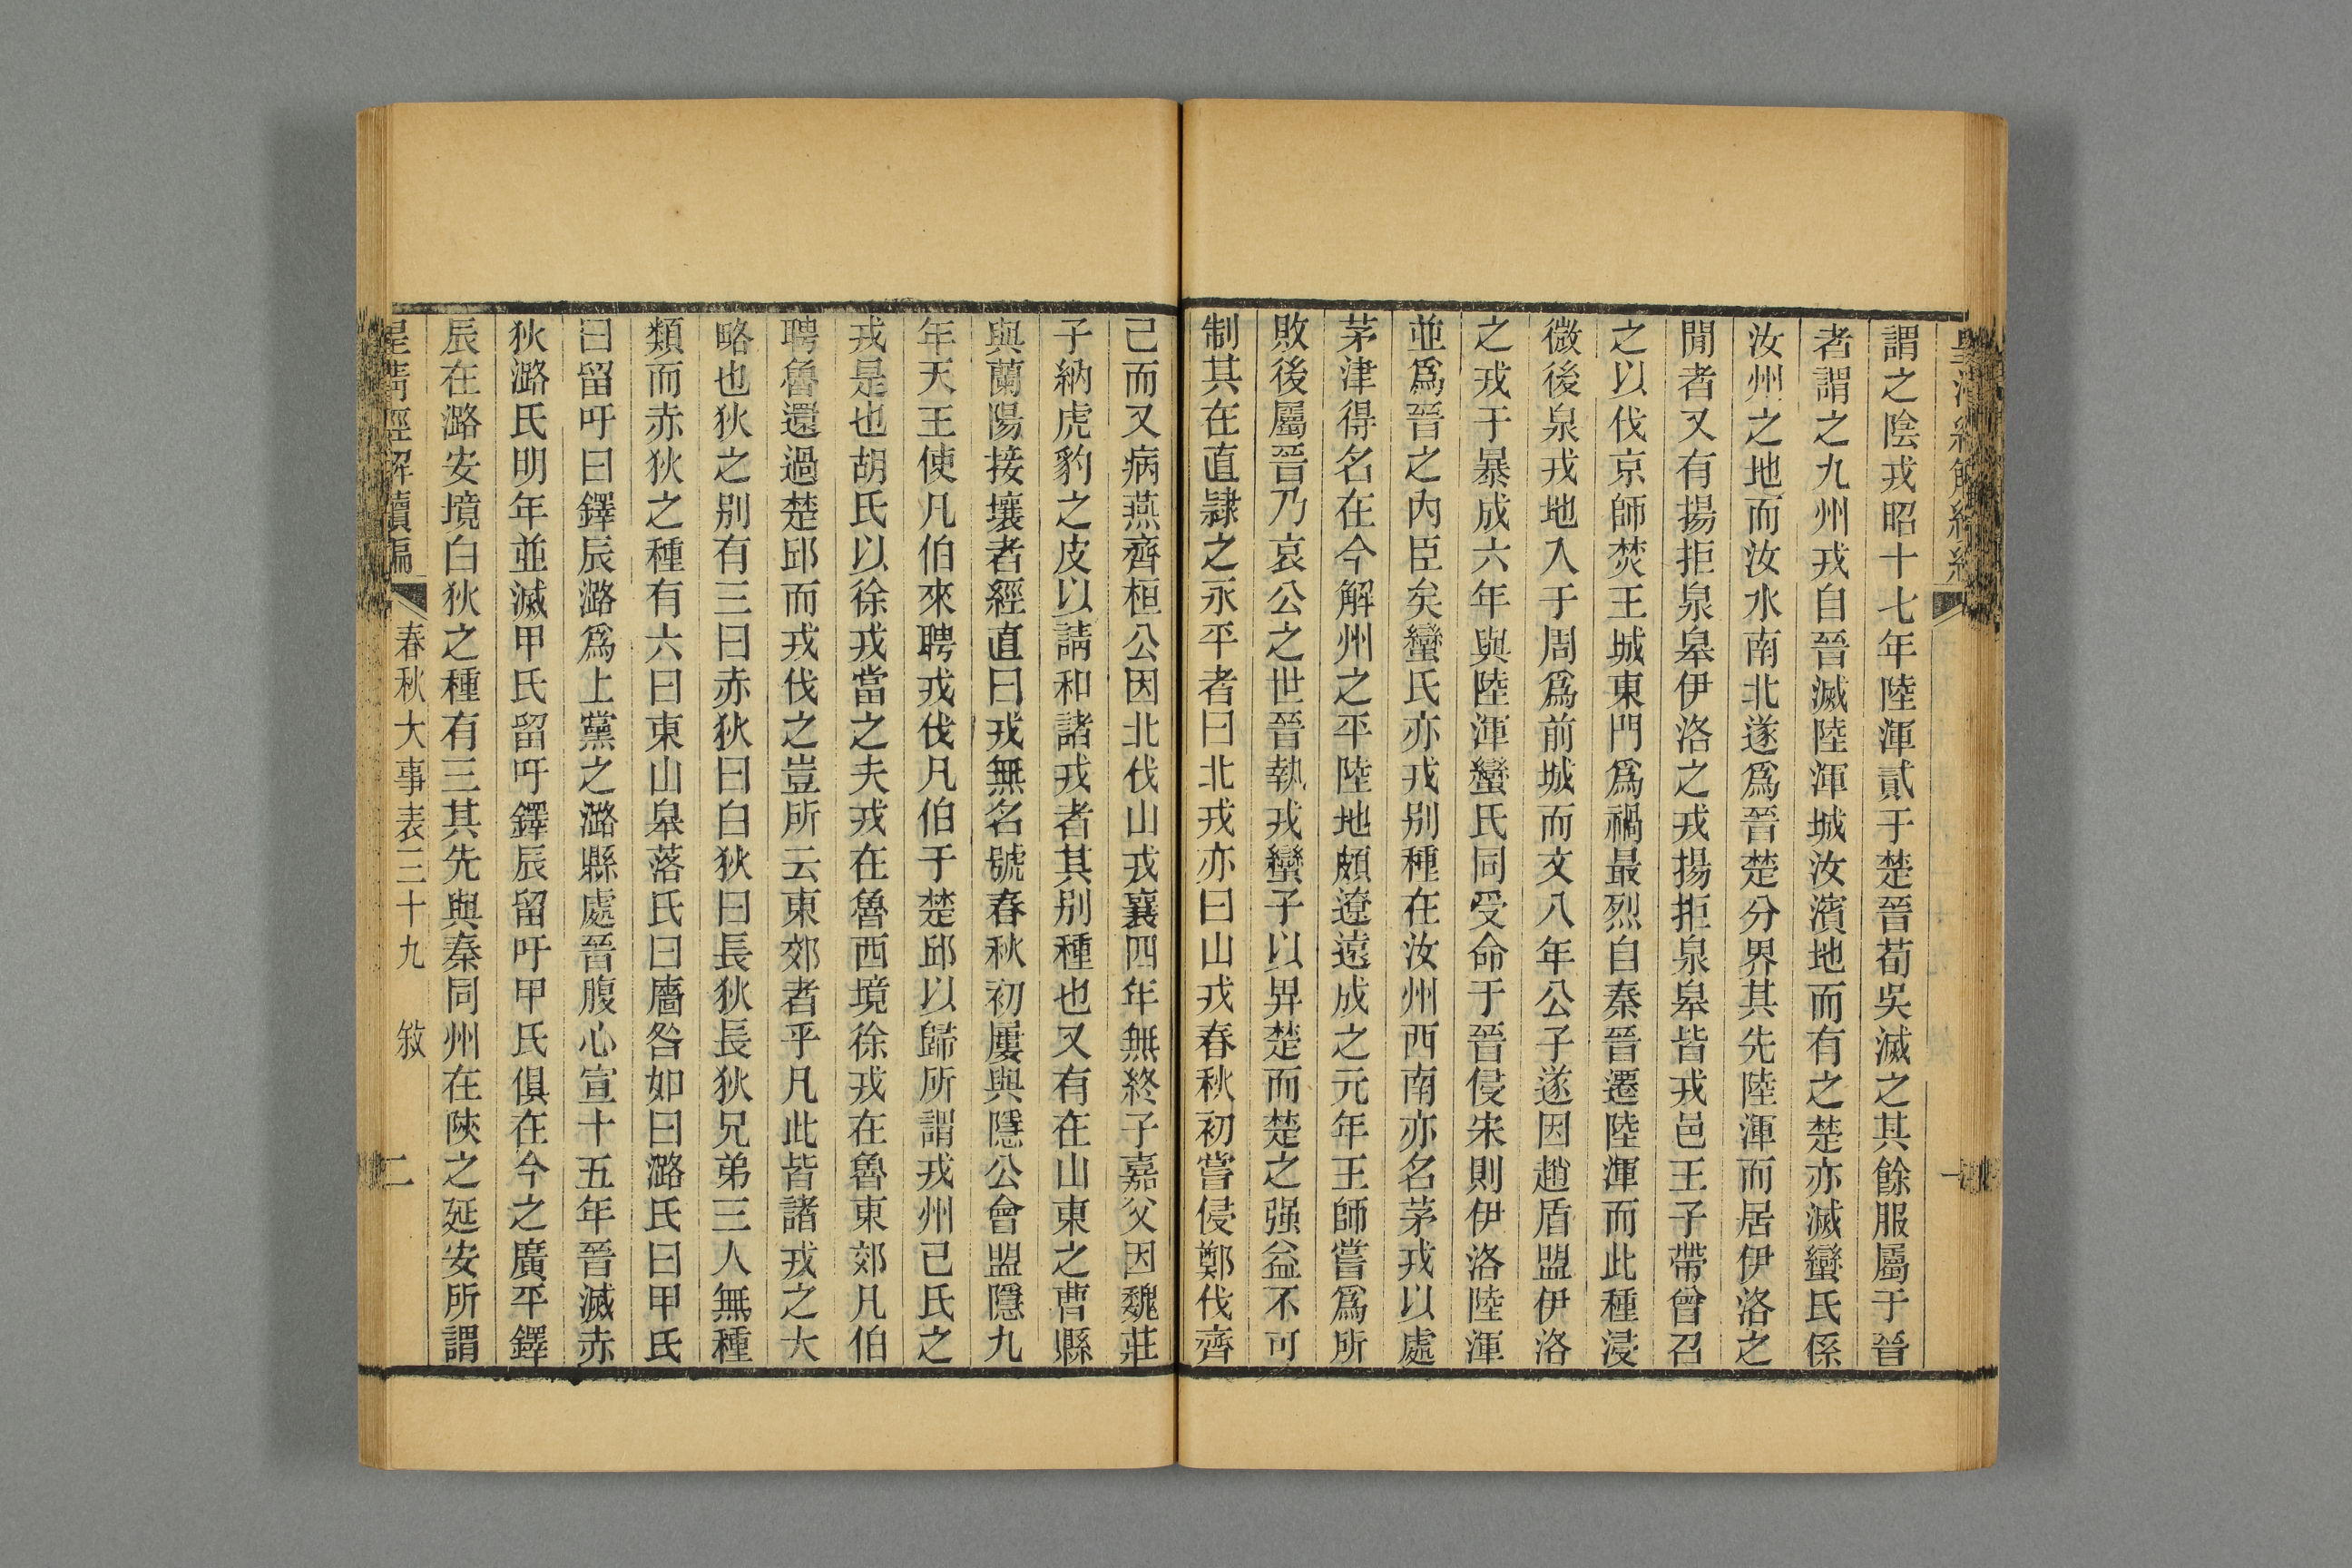 謂之陰戎昭十七年陸渾貳于楚晉荀吳滅之其餘服屬于晉
者謂之九州戎自晉滅陸渾城汝濱地而有之楚亦滅蠻氏係
汝州之地而汝水南北遂爲晉楚分界其先陸渾而居伊洛之
閒者又有揚拒泉皋伊洛之戎揚拒泉皋皆戎邑王子帶曾召
之以伐京師焚王城東門爲禍最烈自秦晉遷陸渾而此種浸
微後泉戎地入于周爲前城而文八年公子遂因趙盾盟伊洛
之戎于暴成六年與陸渾蠻氏同受命于晉侵宋則伊洛陸渾
並爲晉之內臣矣蠻氏亦戎别種在汝州西南亦名茅戎以處
茅津得名在今解州之平陸地頗遼遠成之元年王師嘗爲所
敗後屬晉乃哀公之世晉執戎蠻子以畀楚而楚之强益不可
制其在直隸之永平者曰北戎亦曰山戎春秋初嘗侵鄭伐齊
己而又病燕齊桓公因北伐山戎襄四年無終子嘉父因魏莊
子納虎豹之皮以請和諸戎者其别種也又有在山東之曹縣
與蘭陽接壤者經直曰戎無名號春秋初屢與隱公會盟隱九
年天王使凡伯來聘戎伐凡伯于楚邱以歸所謂戎州己氏之
戎是也胡氏以徐戎當之夫戎在魯西境徐戎在魯東郊凡伯
聘魯還過楚邱而戎伐之豈所云東郊者乎凡此皆諸戎之大
略也狄之别有三曰赤狄曰白狄曰長狄長狄兄弟三人無種
類而赤狄之種有六曰東山皋落氏曰廧咎如曰潞氏曰甲氏
曰留吁曰鐸辰潞爲上黨之潞縣處晉腹心宣十五年晉滅赤
狄潞氏明年並滅甲氏留吁鐸辰留吁甲氏俱在今之廣平鐸
辰在潞安境白狄之種有三其先與秦同州在陝之延安所謂
皇清經解續編 春秋大事表三十九 敘 二